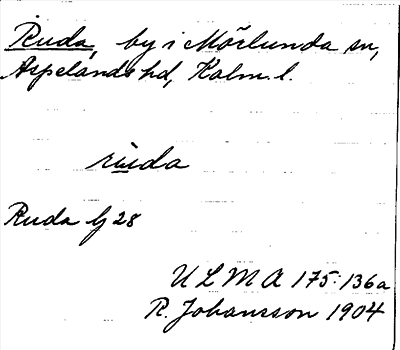 Ruda, by i Mörlunda sn,
Aspelands hd, Kalm. l.
ru̲da
Ruda bj 28
ULMA 175:136a
R. Johansson 1904